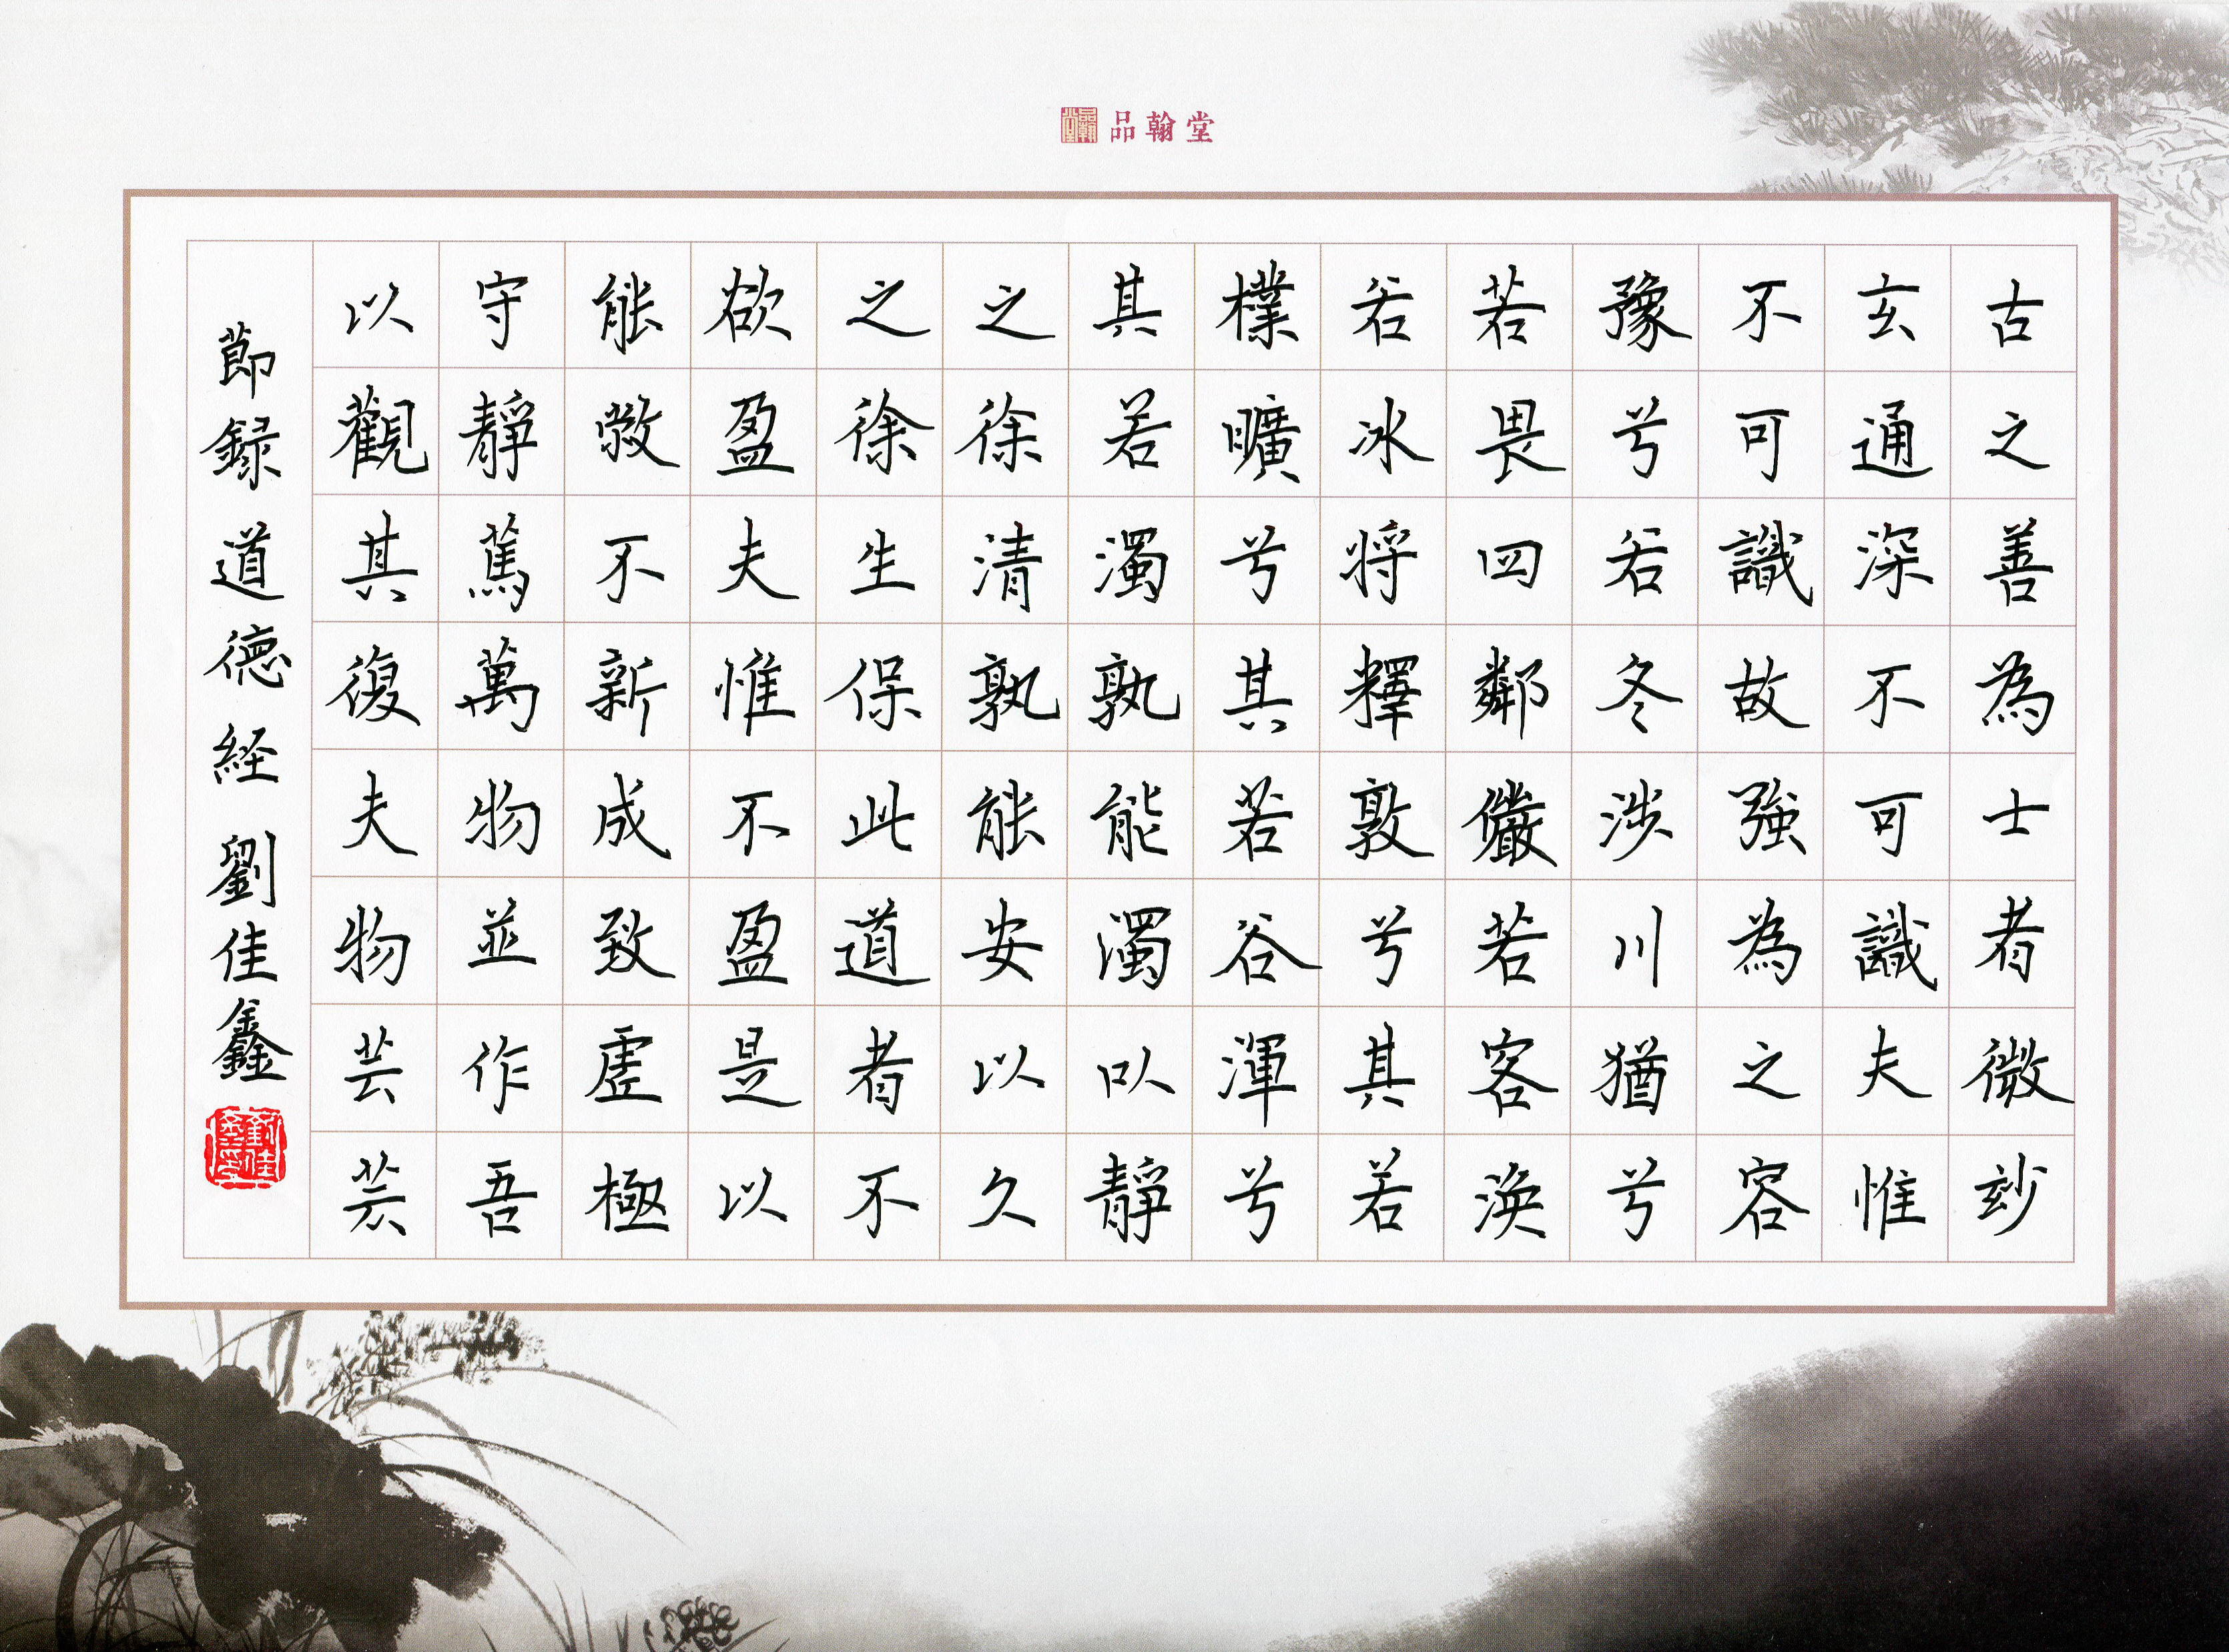 品翰堂
古之善為士者微玅
玄通深不可識夫惟
不可識故強為之容
豫兮若冬涉川猶兮
若畏四鄰儼若客渙
若冰将釋敦兮其若
樸曠兮其若谷渾兮
其若濁孰能濁以靜
之徐清孰能安以久
之徐生保此道者不
欲盈夫惟不盈是以
能敝不新成致虛極
守靜篤萬物並作吾
以觀其復夫物芸芸
節録道德経劉佳鑫